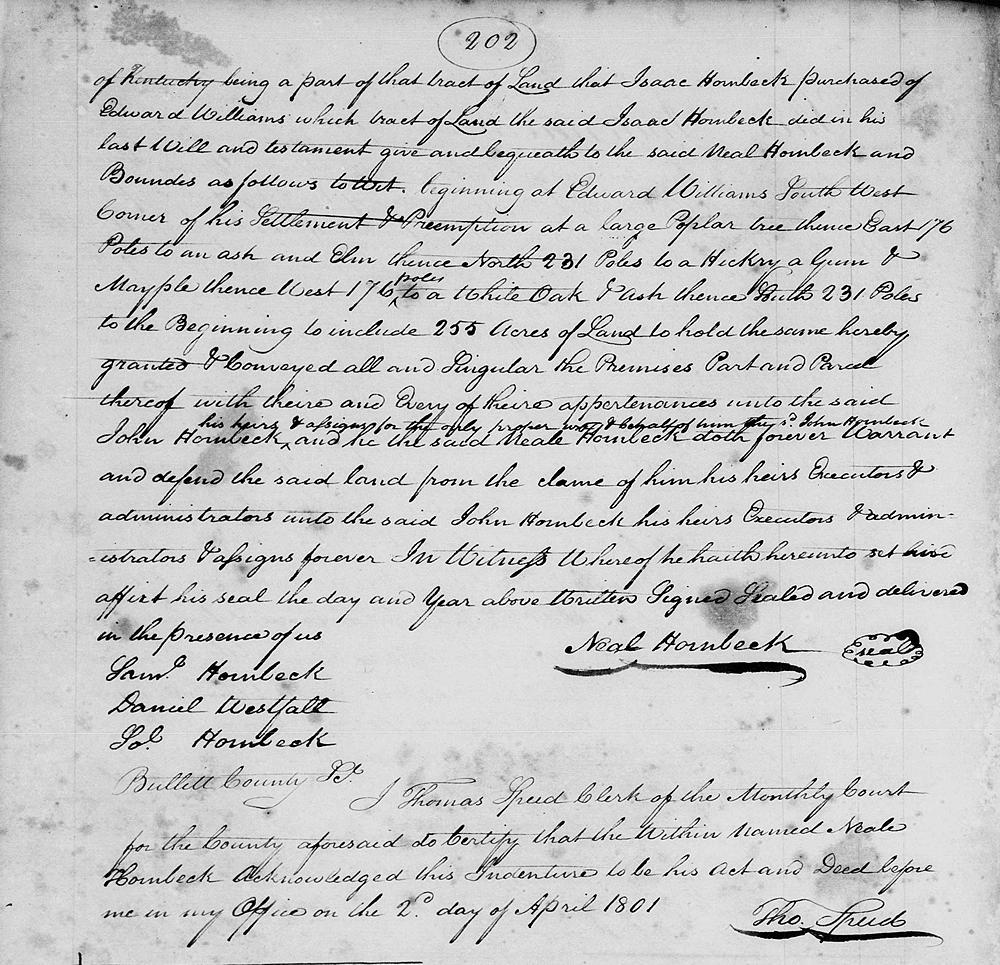 202
of Kentucky being a part of that tract of Land that Isaac Hornbeck purchased of
Edward Williams which tract of Land the said Isaac Hornbeck did in his
last Will and testament give and bequeath to the said Neal Hornbeck and
Boundes as follows to Wit. beginning at Edward Williams South West
Corner of his Settlement & Preemption at a large Poplar tree thence East 176
Poles to an ash and Elm thence North 231 Poles to a Hickry a Gum &
poles
Mayple thence West 176 ^ to a White Oak & Ash thence South 231 Poles
to the Beginning to include 255 Acres of Land to hold the same hereby
granted & Conveyed all and Singular the Premises Part and Parcel
thereof with theire and Every of theire appertenances unto the said
his heirs & assigns for the only proper use & behalf of him the sd. John Hornbeck
John Hornbeck ^ and he the said Neale Hornbeck doth forever Warrant
and defend the said land from the clame of him his heirs Executors &
administrators unto the said John Hornbeck his heirs Executors & admin-
=istrators & assigns forever In Witness Whereof he haith hereunto set
affixt his seal the day and Year above Written Signed Sealed and delivered
in the presence of us
Neal Hornbeck Seal
Saml. Hornbeck
Daniel Westfall
Sol. Hornbeck
Bullitt County Sct.
I Thomas Speed Clerk of the Monthly Court
for the County aforesaid do Certify that the Within Named Neale
Hornbeck Acknowledged this Indenture to be his Act and Deed before
me in my Office on the 2d. day of April 1801
Tho. Speed